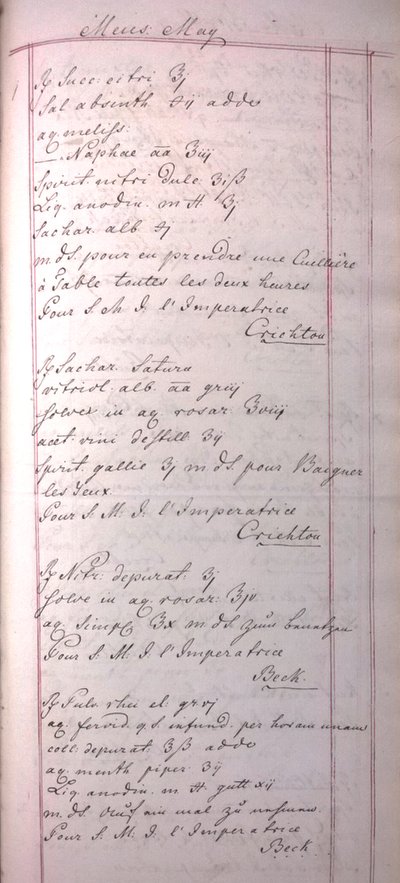 Mens: May
1
℞ Succ: citri ʒj
Sal absinth ℈ij adde
aq: meliss:
—. Naphae aa ʒiij
Spirit. nitri dulc ʒiß
Liq. anodin. m H. ʒj
Sachar. alb ℈j
m. dS. pour en prendre une Cuillière
à Table toutes les deux heures
Pour S. M. I. l'Imperatrice
Crichton
℞ Sachar. Saturn
vitriol. alb. aa griij
solve in aq. rosar. ʒviij
acet. vini destill ʒij
Spirit. gallic ʒj m dS. pour Baigner
les Yeux.
Pour S. M. I. l'Imperatrice
Crichton
℞ Nitr: depurat: ʒj
solve in aq. rosar: ʒiv
aq. simpl ʒx m. dS. zum benetzen
Pour S. M. I. l'Imperatrice
Beck.
℞ Pulv. rhei el: gr.vj
aq. fervid. q.S. infund. per horam unam
coll: depurat. ʒß adde
aq. menth piper. ʒij
Liq. anodin. m H. gutt xij
m. dS. auf ein mal zu nehmen.
Pour S. M. I. l'Imperatrice
Beck.